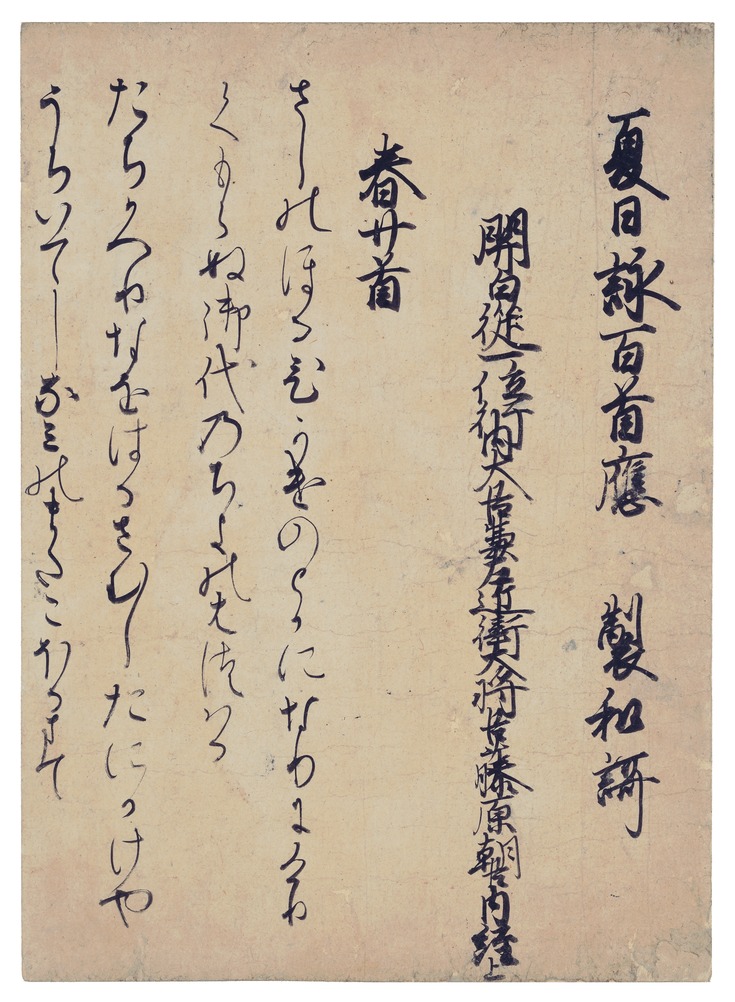 夏日詠百首應　製和謌
関白従一位行内大臣兼左近衛大将臣藤原朝臣内経上
春廿首
さしのほるひかけのとかになりにけり
くもらぬ御代のちよのはつはる
たちかへりなをはるさむしたにかけや
うちいてしなみのまたこほるまて